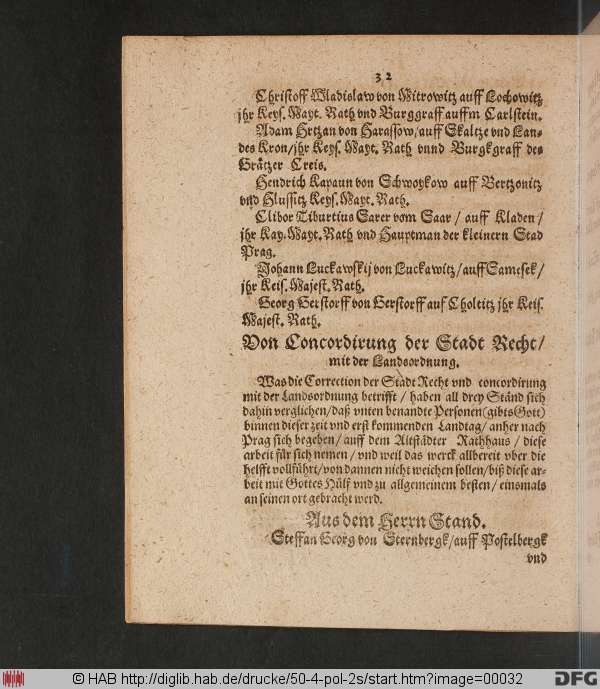 32
Christoff Wladislaw von Mitrowitz auff Lochowitz
jhr Keys. Mayt. Rath vnd Burggraff auffm Carlstein.
Adam Hrtzan von Harassow/auff Skaltze vnd Lan-
des Kron/jhr Keys. Mayt. Rath vnnd Burgkgraff des
Grätzer Creis.
Hendrich Kapaun von Schwoykow auff Bertzonitz
vnd Hlussitz Keys. Mayt. Rath.
Clibor Tiburtius Sarer vom Saar / auff Kladen/
jhr Kay. Mayt. Rath vnd Hauptman der kleinern Stad
Prag.
Johann Luckawskij von Luckawitz/auff Samcsek/
jhr Keis. Majest. Rath.
Georg Gerstorff von Gerstorff auf Choltitz jhr Keis.
Majest. Rath.
Von Concordirung der Stadt Recht/
mit der Landsordnung.
Was die Correction der Stadt Recht vnd concordirung
mit der Landsordnung betrifft / haben all drey Ständ sich
dahin verglichen/daß vnten benandte Personen (gibts Gott)
binnen dieser zeit vnd erst kommenden Landtag/anher nach
Prag sich begeben/auff dem Altstädter Rathhaus / diese
arbeit für sich nemen/vnd weil das werck allbereit vber die
helfft vollführt/von dannen nicht weichen sollen/biß diese ar-
beit mit Gottes Hülf vnd zu allgemeinem besten/einsmals
an seinen ort gebracht werd.
Aus dem Herrn Stand.
Steffan Georg von Sternbergk/auff Postelbergk
vnd
© HAB http://diglib.hab.de/drucke/50-4-pol-2s/start.htm?image=00032
DFG